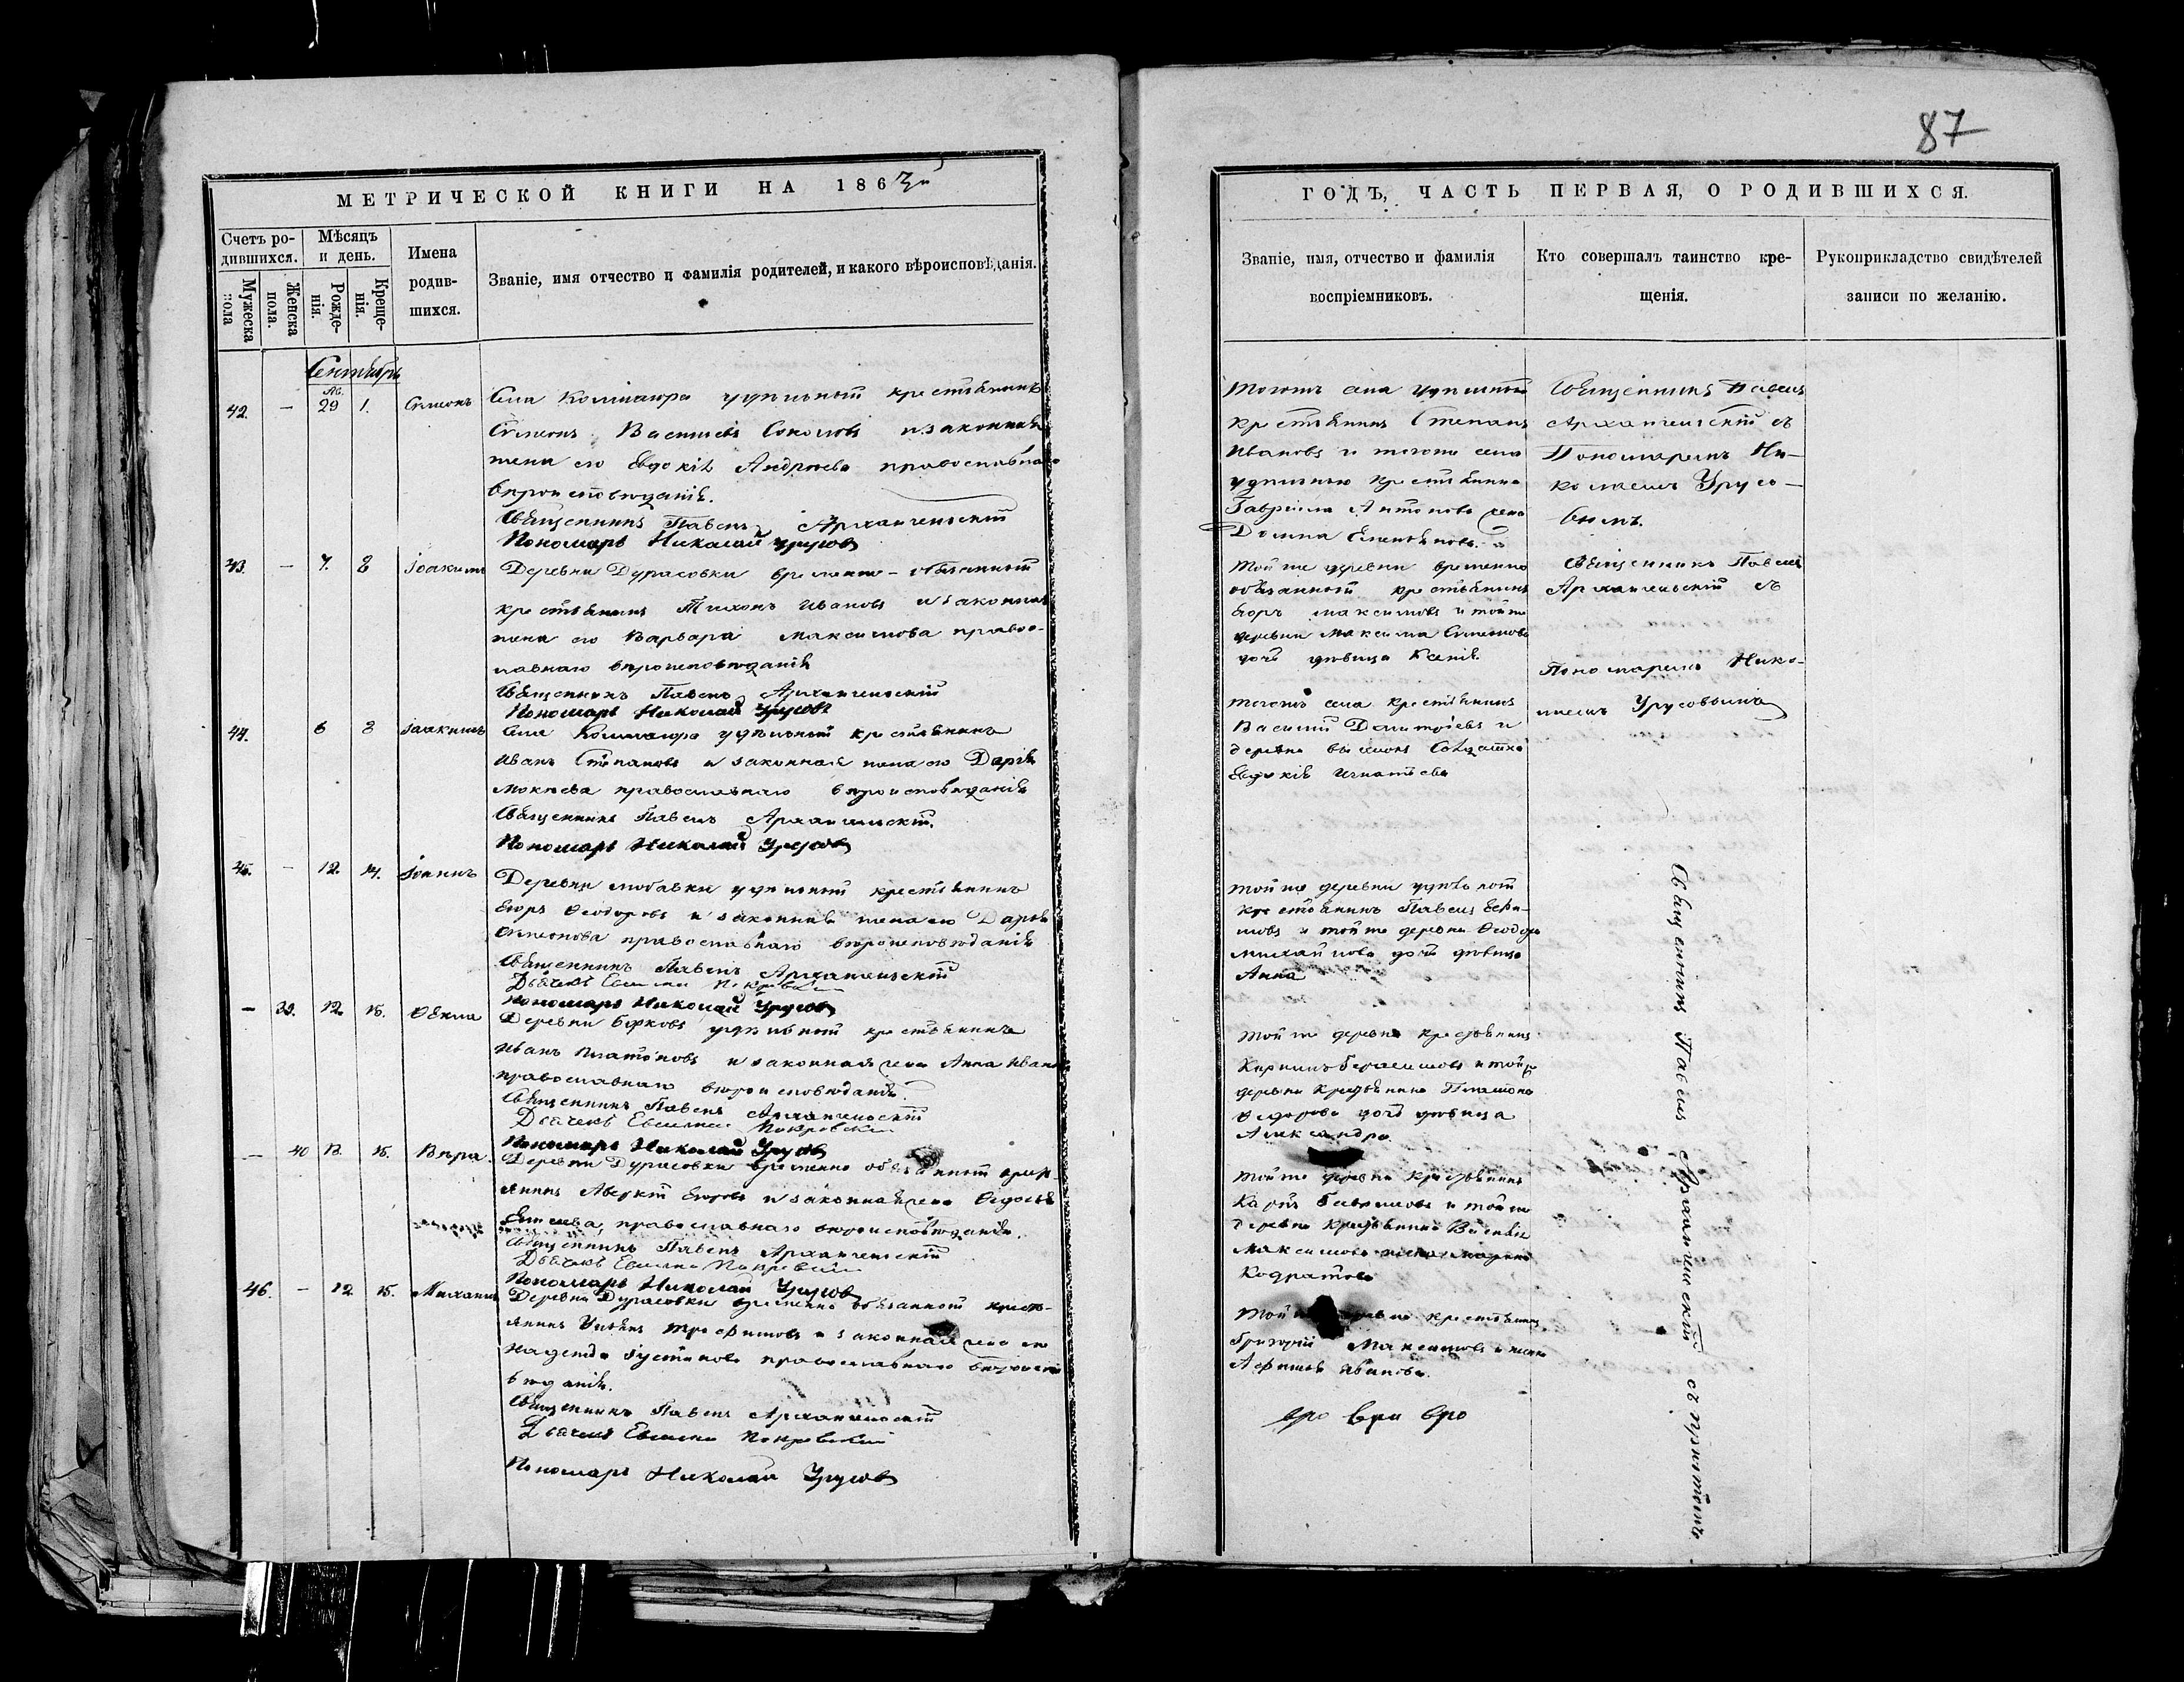 87
МЕТРИЧЕСКОЙ КНИГИ НА 1863й
Счетъ ро-
дившихся.
Мужеска
пола
Женска
пола.
Мѣсяцъ
и день.
Рожде-
нія.
Креще-
нія.
Имена
родив-
шихся.
Званіе, имя отчество и фамилія родителей, и какого вѣроисповѣданія.
Сентябрь
Ав.
42. — 29 1. Симеонъ
Села удѣльный крестьянинъ
Симеонъ Васильевъ Соколовъ и законная
жена его Евдокія Андреева православнаго
вѣроисповѣданія.
Священникъ Павелъ Архангельскій
Пономарь Николай Урусовъ
43. — 7. 8 Іоакимъ
Деревни Дурасовки временно-обязанный
крестьянинъ Тихонъ Ивановъ и законная
жена его Варвара Максимова правос-
лавнаго вѣроисповѣданія
Священникъ Павелъ Архангельскій
Пономарь Николай Урусовъ
44. 6 8 Іоакимъ
Села удѣльный крестьянинъ
Иванъ Степановъ и законная жена его Дарія
православнаго вѣроисповѣданія
Священникъ Павелъ Архангельскій.
Пономарь Николай Урусовъ
45. — 12. 14. Іоаннъ
Деревни удѣльный крестьянинъ
Егоръ Ѳеодоровъ и законная жена его Дарья
Симеонова православнаго вѣроисповѣданія
Священникъ Павелъ Архангельскій
Дьячекъ Покровскій
Пономарь Николай Урусовъ
— 39. 12. 15. Ѳекла
Деревни удѣльный крестьянинъ
Иванъ Платоновъ и законная жена Анна
православнаго вѣроисповѣданія.
Священникъ Павелъ Архангельскій
Дьячекъ Покровскій
Пономарь Николай Урусовъ
— 40 15. Вѣра.
Деревни Дурасовки временно обязанный крест-
янинъ Аверкій Егоровъ и законная жена
православнаго вѣроисповѣданія.
Священникъ Павелъ Архангельскій
Дьячекъ Покровскій
Пономарь Николай Урусовъ
46. — 12 15. Михаилъ
Деревни Дурасовки временно обязанный кресть-
янинъ Трофимовъ и законная жена его
Надежда Іустинова православнаго вѣроиспо
вѣданія.
Священникъ Павелъ Архангельскій
Дьячекъ Покровскій
Пономарь Николай Урусовъ
ГОДЪ, ЧАСТЬ ПЕРВАЯ, О РОДИВШИХСЯ.
Званіе, имя, отчество и фамилія
воспріемниковъ.
Кто совершалъ таинство кре-
щенія.
Рукоприкладство свидѣтелей
записи по желанію.
Тогожъ села удѣльный
крестьянинъ Степанъ
Ивановъ и тогоже села
удѣльнаго крестьянина
Гавріила Антонова жена
Домна
Священникъ Павелъ
Архангельскій съ
Пономаремъ Ни-
колаемъ Урусо-
вымъ.
Той же деревни временно
обязанный крестьянинъ
Егоръ Максимовъ и той же
деревни Максима Симеонова
дочь дѣвица Ксенія.
Священникъ Павелъ
Архангельскій съ
Пономаремъ Нико-
лаемъ Урусовымъ
Тогожъ села крестьянинъ
Василій Димитріевъ и
деревни Солдатка
Евдокія Игнатьева
Той же деревни удѣльный
крестьянинъ Павелъ Ефи-
мовъ и той же деревни Ѳеодора
Михайлова дочь дѣвица
Анна
Той же деревни крестьянинъ
Герасимовъ и той же
деревни крестьянина Платона
Ѳедорова дочь дѣвица
Александра.
Той же деревни крестьянинъ
Карпъ и той же
деревни крестьянина
Максимова жена
Той деревни крестьянинъ
Григорій Максимовъ и жена
Афимья Иванова.
Священникъ Павелъ Архангельскій съ причтомъ